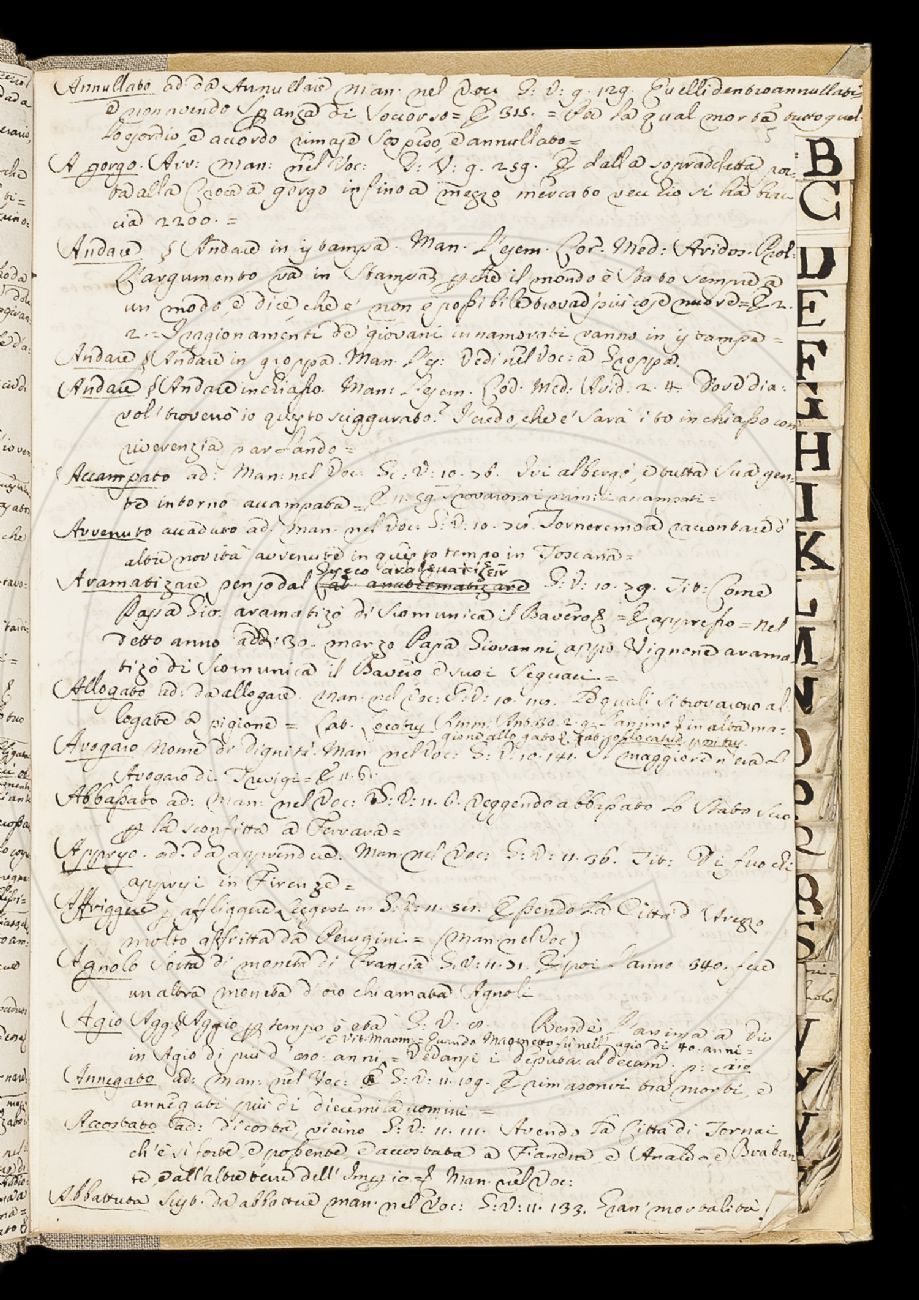 Annullato ad. da Annullare man. nel Voc. G: V: 9. 129. Quelli dentro annullati
e non avendo speranza di soccorso = E 315. = Per la qual morte tutto quel
5
accordo rimase sospeso, e annullato =
A gorgo. Avv: Man: nel Voc: G: V: 9. 259. E dalla sopraddetta por-
ta alla a gorgo infino a mezzo mercato vecchio si ha brac-
cia 2200. =
Andare § Andare in istampa. Man. l'esem. Cor. Med: Aridos. Prol:
L'argumento va in stampa perche il mondo è stato sempre a
un modo, e dice che e' non è possibile trovar più cose nuove = E 2.
2. = I ragionamenti de giovani innamorati vanno in istampa =
Andare § Andare in groppa. Man. l'es: Vedi nel Voc: a Groppa.
Andare § Andare in chiasso. Man: l'esem. Cor. Med. Arid. 2. 4. Dove dia-
vol' troverò io questo sciaggurato? I credo, che e' sarà ito in chiasso con
riverenzia parlando =
Accampato ad: Man: nel Voc: G: V: 10. 76. Ivi albergò, e tutta sua gen-
te intorno accampata = E si trovarono i primi accampati =
Avvenuto accaduto ad: Man: nel Voc: G: V: 10. Torneremo a raccontare d'
altre novità avvenute in questo tempo in Toscana =
Greco
Aramatizare per so dal lat. anathematizare G: V: 10. 39. Tit: Come
Papa Gio: aramatizò di scomunica il Bavero = E appresso = Nel
detto anno addì 30. marzo Papa Giovanni appo Vignone arama-
tizò di scomunica il Bavero e suoi seguaci =
Allogato ad: da allogare. Man: nel Voc: G: V: 10. 119. De quali si trovarono al-
logate a pigione = Lat. locatus
Avogaro Nome di dignità. Man nel Voc: G: V: 10. 141. Si maggiore n'era l'
Avogaro di Trivigi = E 11. 6.
Abbassato ad: Man: nel Voc: G: V: 11. 6. Veggendo abbassato lo stato suo
per la sconfitta a Ferrara =
Appreso. ad: da apprendere. Man nel Voc: G: V: 11. 36. Tit: Di fuochi
appresi in Firenze =
Affriggere per affliggere leggesi in G: V: 11. Essendo la Città d'Arezzo
molto affritta da Perugini = (Man: nel Voc)
Agnolo Sorta di moneta di Francia G: V: 11. 71. E poi l'anno 340. fece
un altra moneta d'oro chiamata Agnoli
Agio Agg: Aggio per tempo o età G: V. 8. Rendè l'anima a Dio
in Agio di più d' 80. anni =
Annegato ad: Man: nel Voc: G: V: 11. 109. E rimasonvi tra morti, e
annegati più di diecimila uomini =
Accostato ad: Di costa vicino G: V: 11. 111. Avendo la Città di Tornai
ch'è sì forte, e possente e accostata a Fiandra, e Analdo e Braban-
te e all'altre terre dell'Imperio = Man: nel Voc:
Abbattuta Sust. da abbattere man: nel Voc: G: V: 11. 133. Gran mortalità
B
C
D
E
F
G
H
I
K
L
M
N
O
P
Q
R
S
V